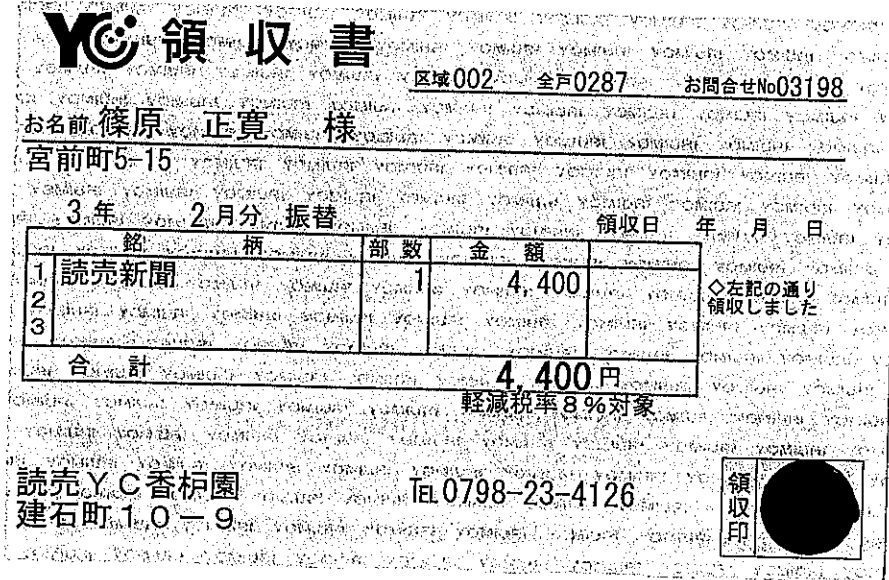 YC 領収書
区域002 全戸0287 お問合せNo03198
お名前 篠原 正寛 様
宮前町5-15
3年 2月分 振替 領収日 年 月 日
銘柄 部数 金額
1 読売新聞 1 4,400
2
3
◇左記の通り
領収しました
合計 4,400円
軽減税率8%対象
読売YC香枦園
建石町10-9
TEL0798-23-4126
領収印